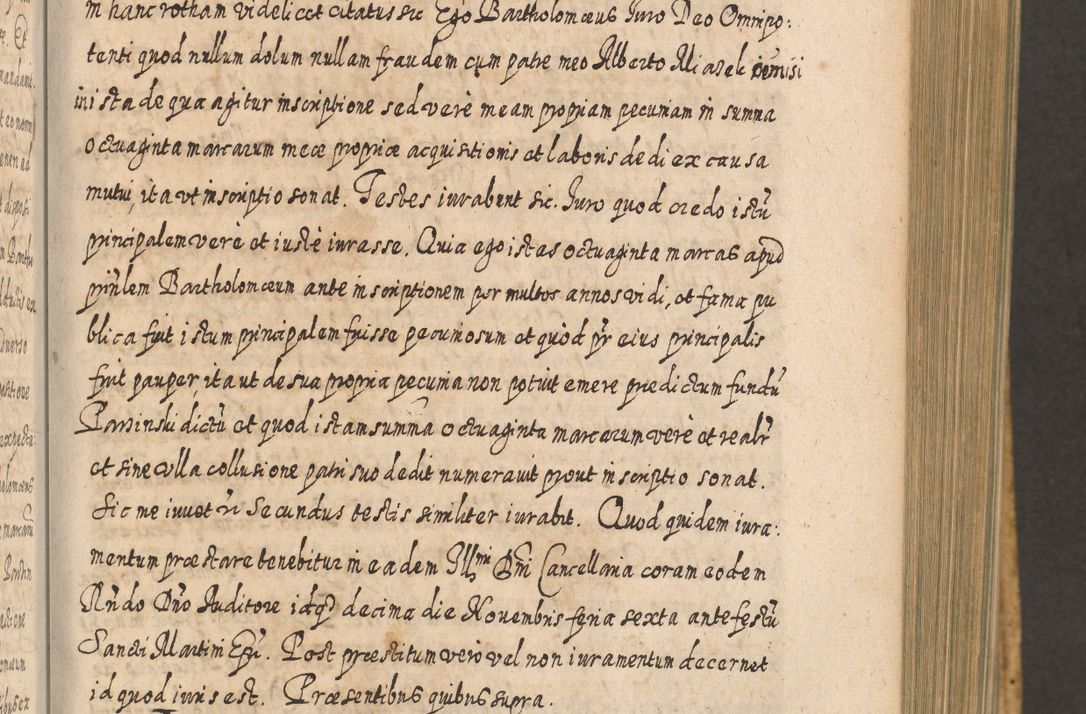 in hanc rotham videlicet citatus sic Ego Bartholomæus Juro Deo Omnipo:
tenti quod nullum dolum nullam fraudem cum patre meo Alberto
in ista de qua agitur inscriptione sed verè meam propriam pecuniam in summa
octuaginta marcarum meæ propriæ acquisitionis et laboris dedi ex causa
mutui, ita ut inscriptio sonat. Testes iurabunt sic. Juro quod credo istũ
principalem verè et iustè iurasse. Quia ego istas octuaginta marcas apud
prinlem Bartholomæum ante inscriptionem per multos annos vidi, et fama pu
blica fuit istum principalem fuisse pecuniosum et quòd pr eius principalis
fuit pauper, ita ut de sua propria pecunia non potuit emere prædictum fundũ
Parsinski dictũ et quod istam summã octuaginta marcarum verè et realr
et sine ulla collusione patri suo dedit numeravit prout inscriptio sonat.
Sic me iuvet ñ Secundus testis similiter iurabit. Quod quidem iura:
mentum præstare tenebitur in eadem Illmi Dni Cancellaria coram eodem
Rndo Dno Auditore idq decima die Novembris feria sexta ante festũ
Sancti Martini Epi. Post præstitum verò vel non iuramentum decernet
id quod iuris est. Præsentibus quibus supra.